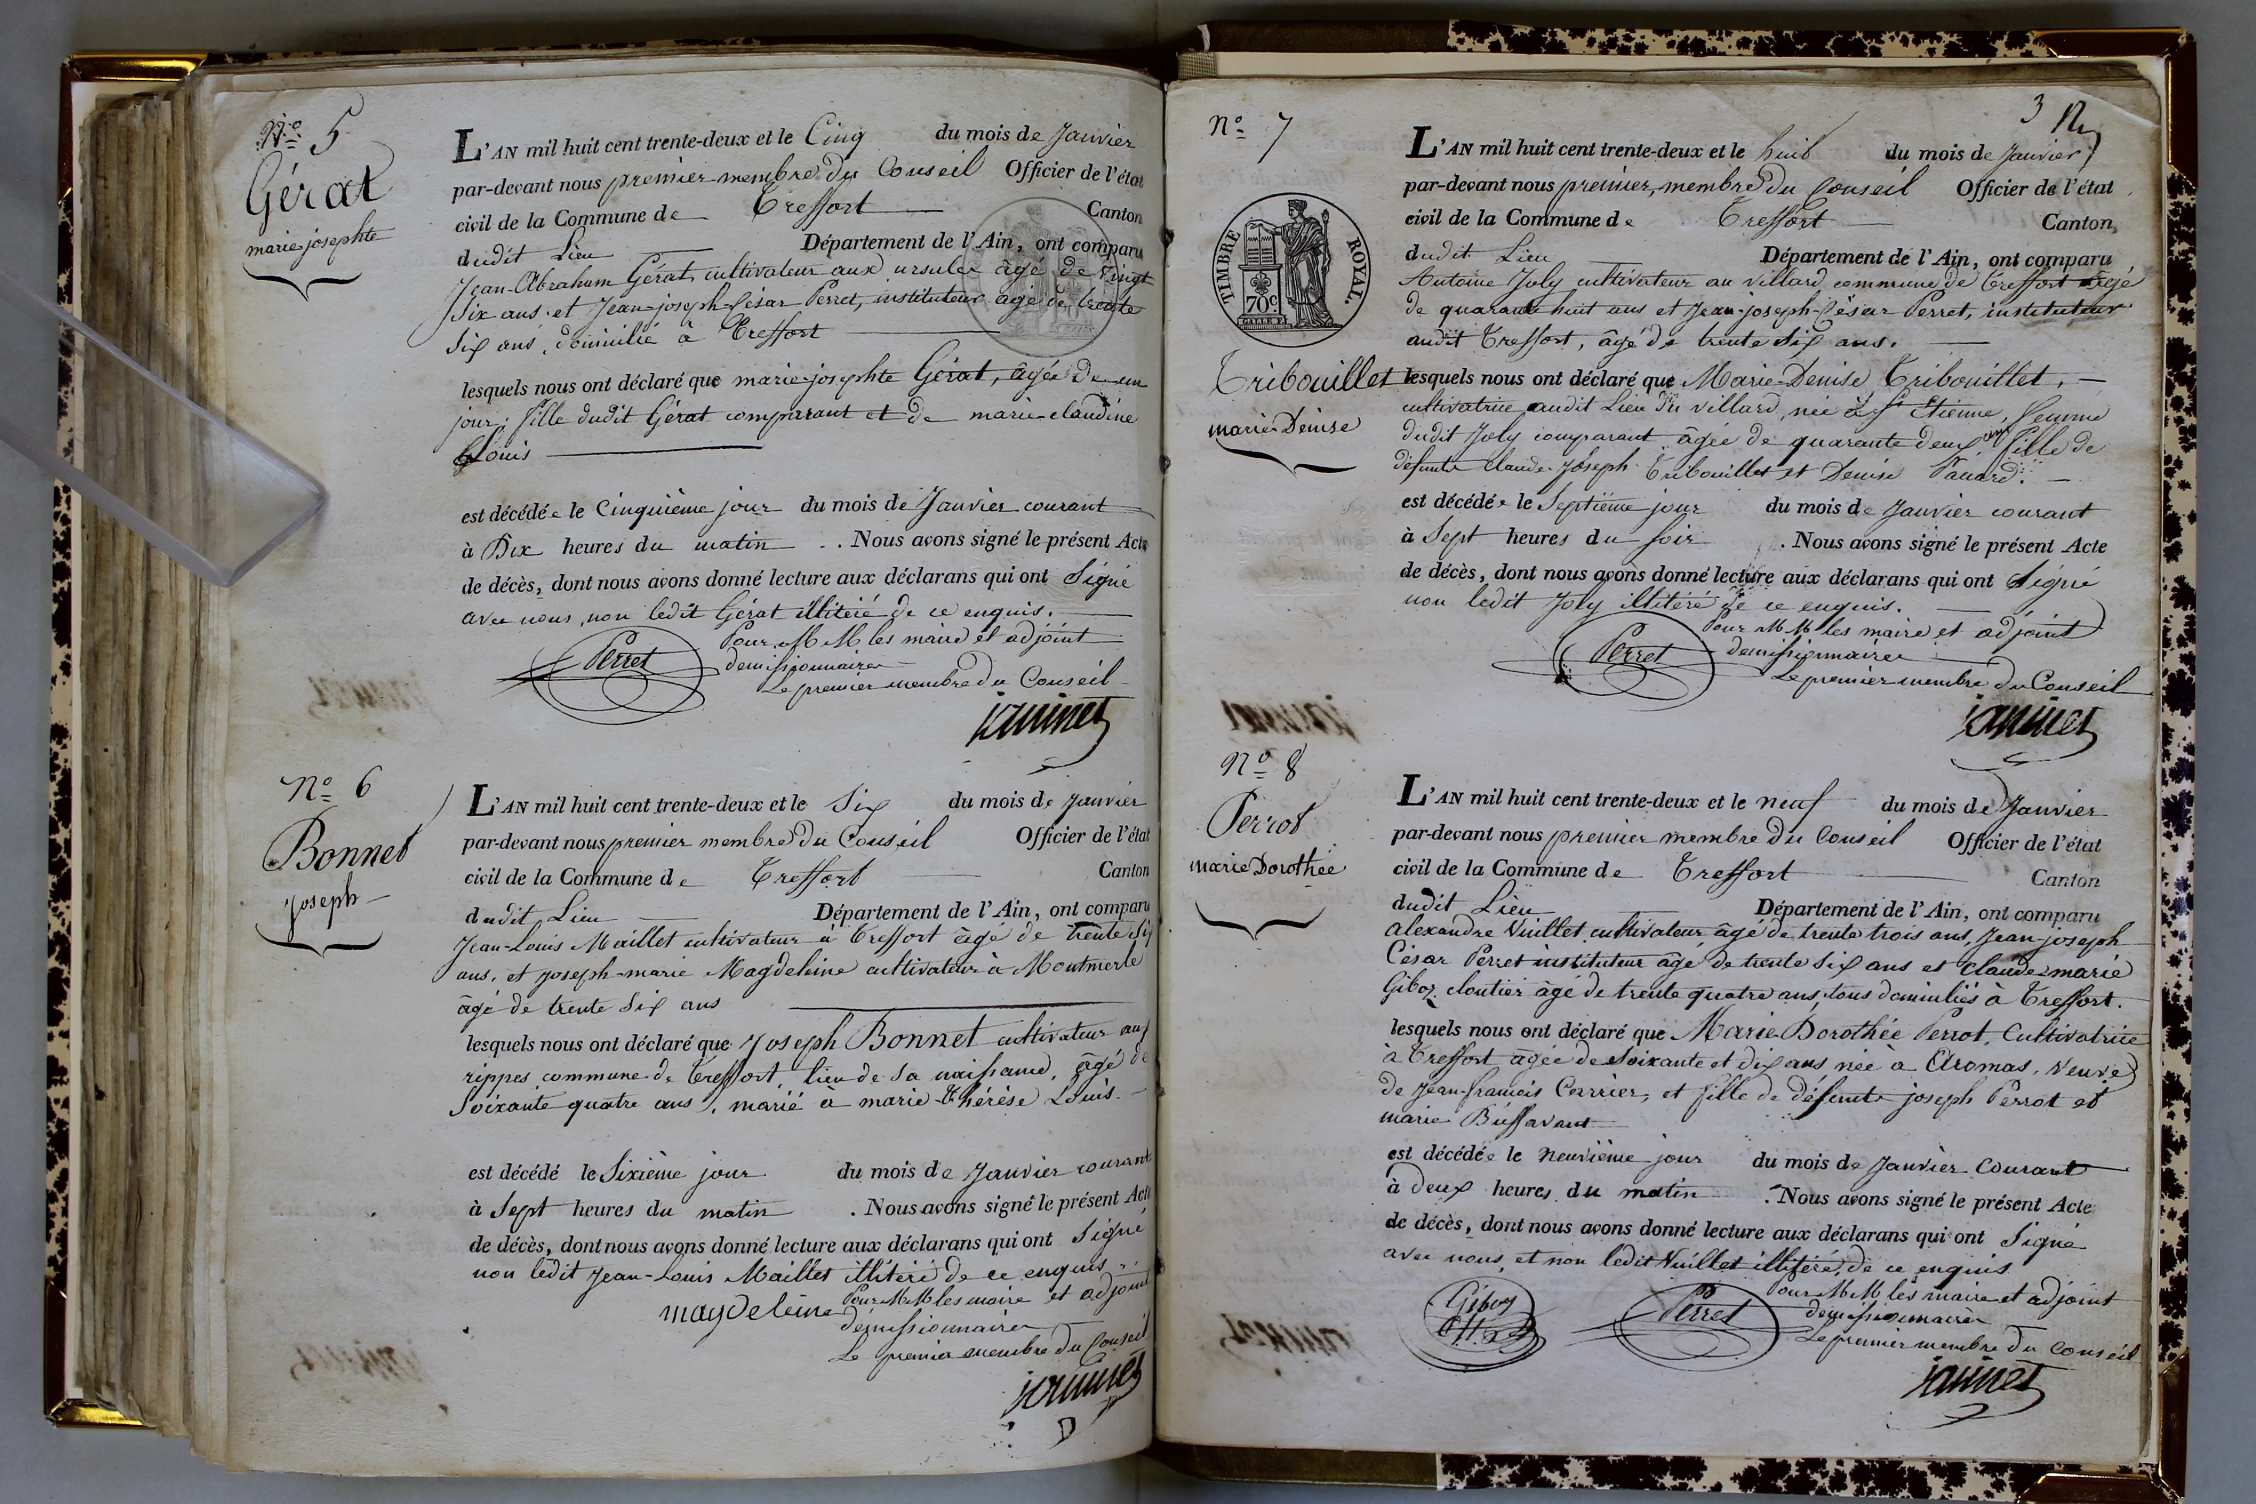 N.º 5
Gérat
marie josephte
L'AN mil huit cent trente-deux et le Cinq du mois de Janvier
par-devant nous premier membre du Conseil Officier de l'état
civil de la Commune de Treffort Canton
dudit Lieu Département de l'Ain, ont comparu
Jean-Abraham Gérat, cultivateur aux ursules âgé de vingt
six ans et Jean-joseph-César Perret, instituteur âgé de trente
six ans, domicilié à Treffort
lesquels nous ont déclaré que marie josephte Gérat, âgée de un
jour, fille dudit Gérat comparant et de marie claudine
Louis
est décédée le Cinquième jour du mois de Janvier courant
à Dix heures du matin . Nous avons signé le présent Acte
de décès, dont nous avons donné lecture aux déclarans qui ont Signé
avec nous, non ledit Gérat illitéré de ce enquis.
Pour MM les maire et adjoint
Perret
demissionnaires
Le premier membre du Conseil
janinet
Nº 6
Bonnet
joseph
L'AN mil huit cent trente-deux et le Six du mois de Janvier
par-devant nous premier membre du Conseil Officier de l'état
civil de la Commune de Treffort Canton
dudit Lieu Département de l'Ain, ont comparu
Jean-Louis Maillet cultivateur à Treffort âgé de trente six
ans, et joseph-marie Magdeleine cultivateur à Montmerle
âgé de trente six ans
lesquels nous ont déclaré que Joseph Bonnet cultivateur aux
rippes commune de Treffort, lieu de sa naissance, âgé de
Soixante quatre ans, marié à marie-Thérèse Louis.
est décédé le Sixième jour du mois de Janvier courant
à Sept heures du matin . Nous avons signé le présent Acte
de décès, dont nous avons donné lecture aux déclarans qui ont Signé
non ledit Jean-Louis Maillet illitéré de ce enquis.
Pour MM les maire et adjoint
magdeleine
démissionnaires
Le premier membre du Conseil
janinet
3
Nº 7
TIMBRE ROYAL.
70c
Tribouillet
marie Denise
L'AN mil huit cent trente-deux et le huit du mois de Janvier
par-devant nous premier, membre du Conseil Officier de l'état
civil de la Commune de Treffort Canton
dudit Lieu Département de l'Ain, ont comparu
Antoine Joly cultivateur au villard commune de Treffort âgé
de quarante huit ans et Jean-joseph-César Perret, instituteur
audit Treffort, âgé de trente six ans.
lesquels nous ont déclaré que Marie-Denise Tribouillet,
cultivatrice audit Lieu du villard née à St Etienne, femme
dudit Joly comparant âgée de quarante deux ans, fille de
défunts claude-Joseph Tribouillet et Denise Panard.
est décédée le Septième jour du mois de Janvier courant
à Sept heures du soir . Nous avons signé le présent Acte
de décès, dont nous avons donné lecture aux déclarans qui ont Signé
non ledit Joly illitéré de ce enquis.
Pour MM les maire et adjoint
Perret
demissionnaires
Le premier membre du Conseil
janinet
Nº 8
Perrot
marie Dorothée
L'AN mil huit cent trente-deux et le neuf du mois de Janvier
par-devant nous premier membre du Conseil Officier de l'état
civil de la Commune de Treffort Canton
dudit Lieu Département de l'Ain, ont comparu
alexandre Vuillet cultivateur âgé de trente trois ans, Jean-joseph
César Perret instituteur âgé de trente six ans et claude marie
Giboz cloutier âgé de trente quatre ans, tous domiciliés à Treffort.
lesquels nous ont déclaré que Marie Dorothée Perrot, Cultivatrice
à Treffort âgée de soixante et dix ans née à Aromas, veuve
de Jean françois Carrier, et fille de défunts joseph Perrot et
marie Buffavant
est décédée le neuvième jour du mois de Janvier Courant
à deux heures du matin . Nous avons signé le présent Acte
de décès, dont nous avons donné lecture aux déclarans qui ont Signé
avec nous, et non ledit Vuillet illitéré, de ce enquis
Pour MM les maire et adjoint
Giboz
Perret
demissionnaires
Le premier membre du Conseil
janinet